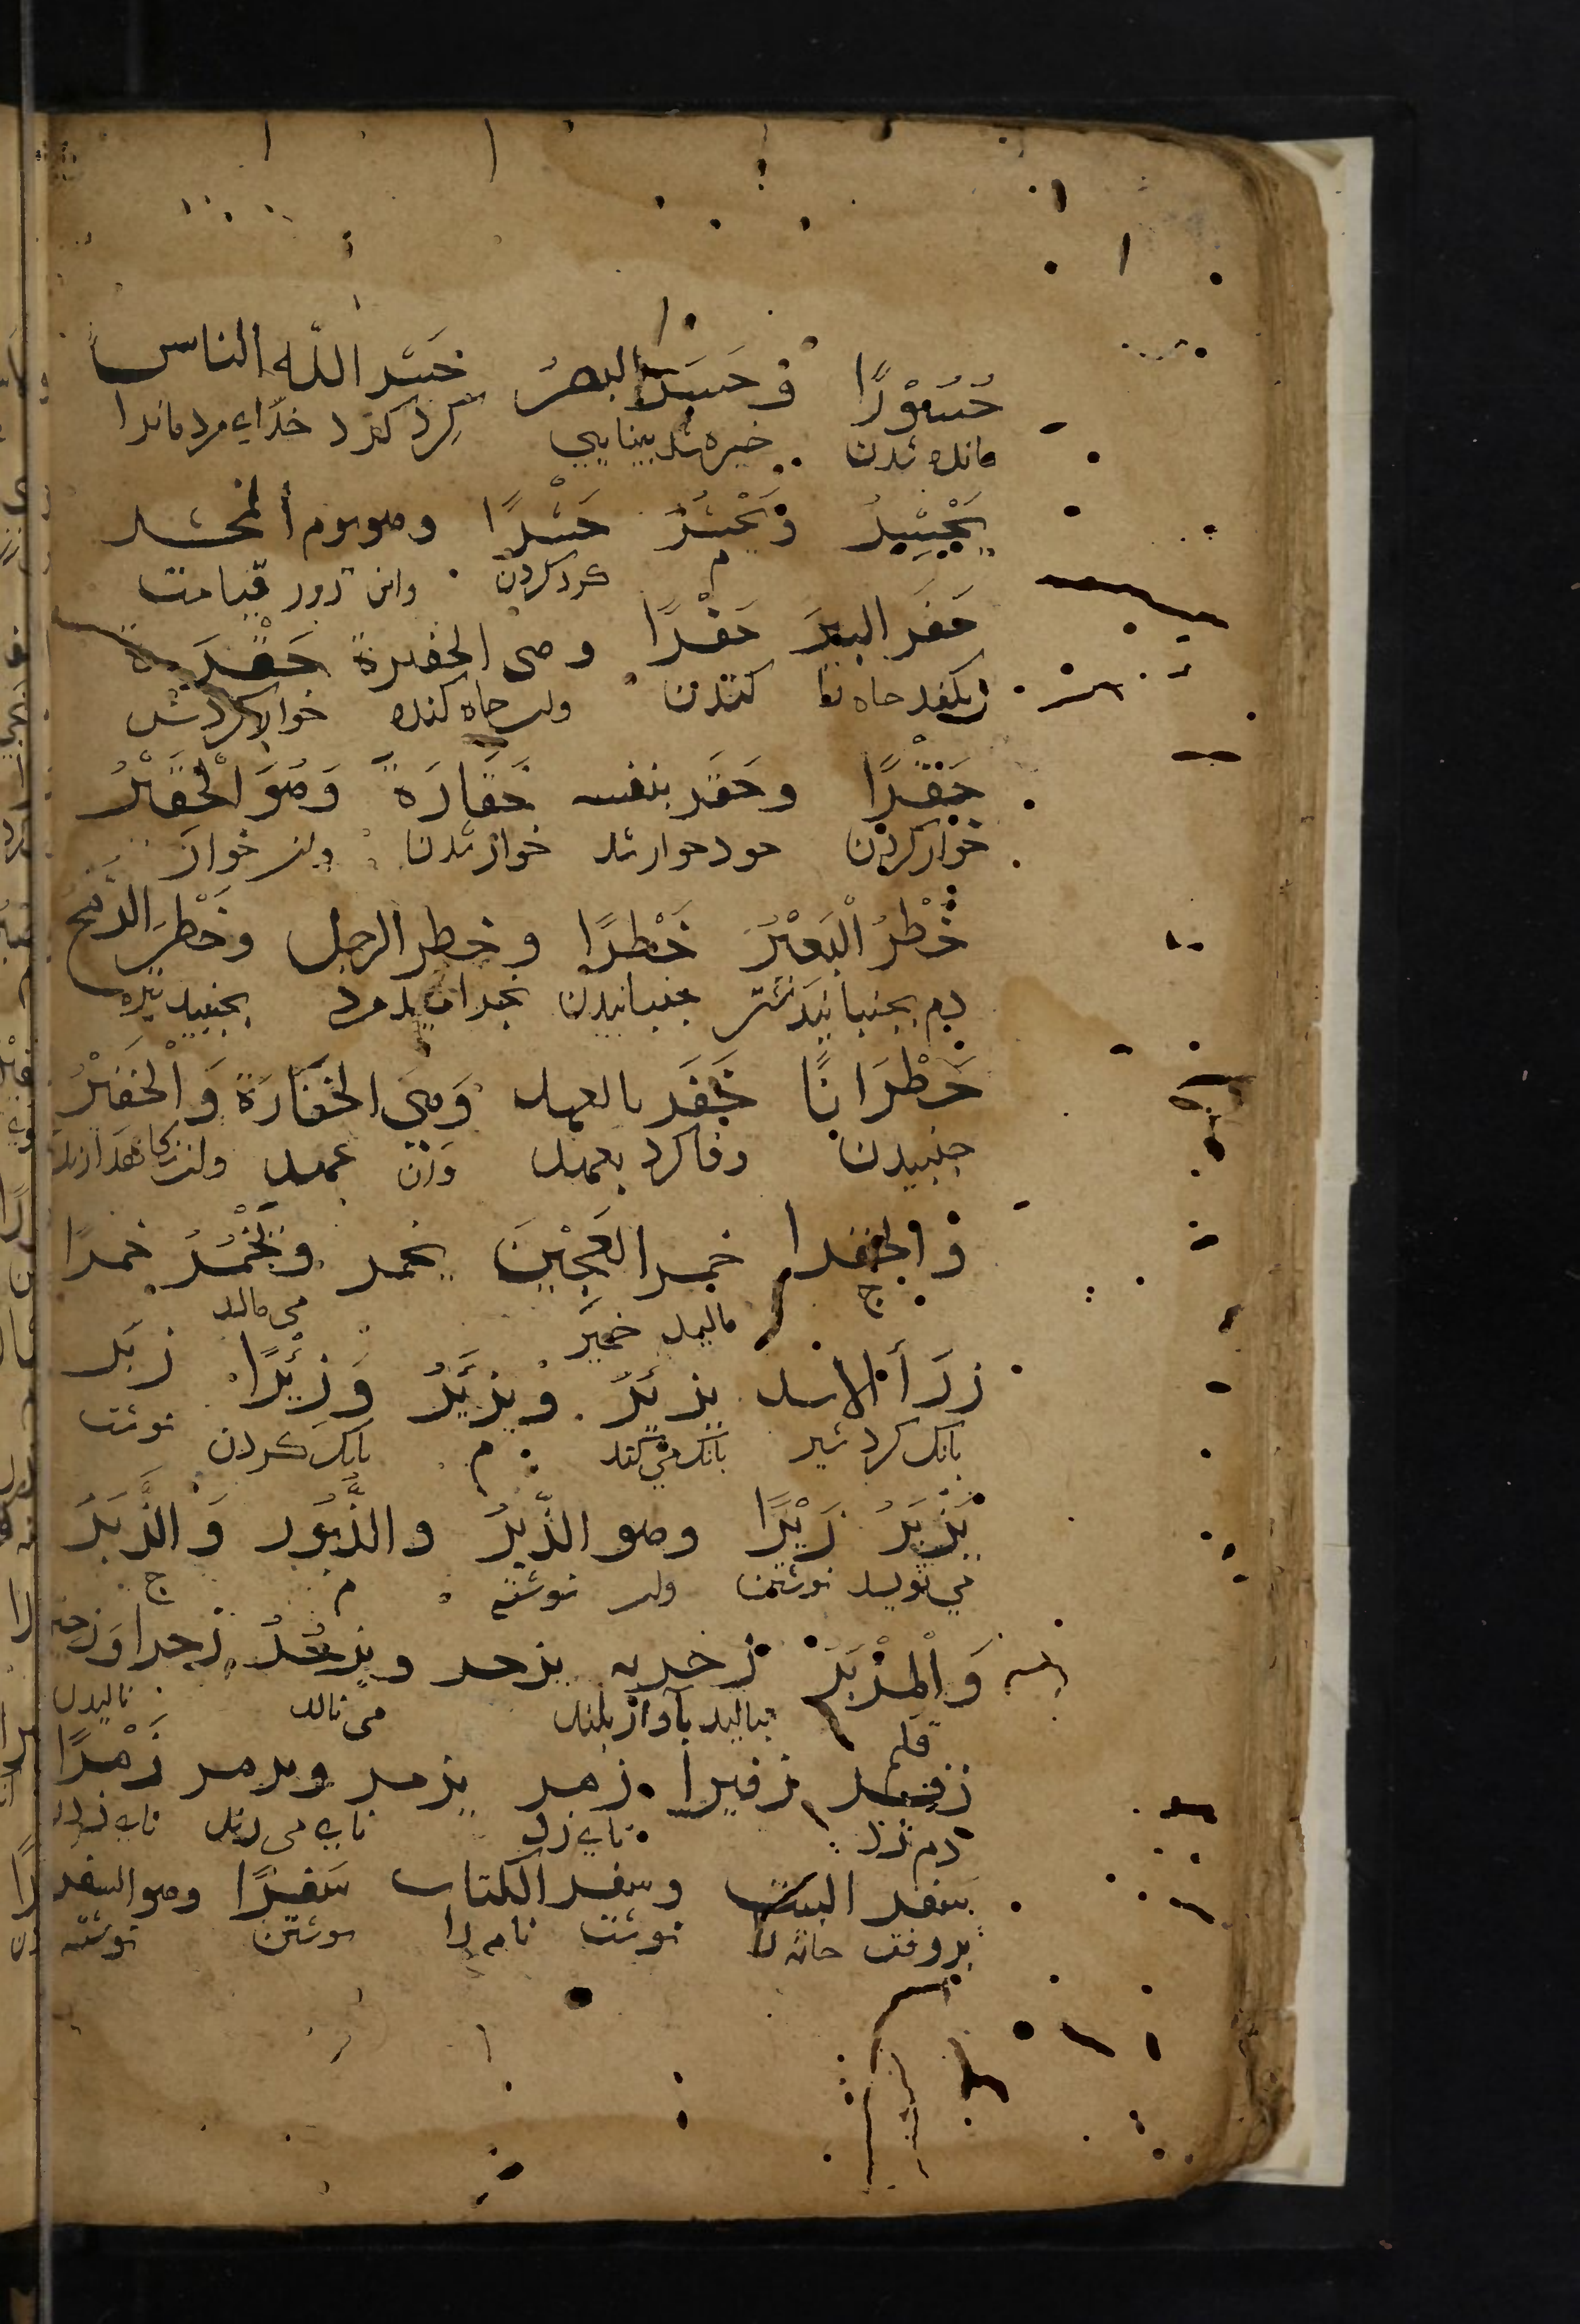 حُسُوْرًا وَ حَسَرَ البصرُ حَشَر اللّه الناس
مانده شدن خیره شد بینایی گِرد کرد خدای مردمانرا
یَحْشِرُ وَ یَحْشُرُ حَشْرًا وهو يوم المحشر
م گرد کردن واین روز قیامت
حَفَر البئرَ حَفْرًا وهى الحفرة حَقَرَهُ
بکند چاه را کندن واین چاه کنده خوار کردش
حَقْرًا وحَقَر بنفسه حَقَارَةً وَهُوَ الْحَقِيْرُ
خوار کردن خود خوار شد خوار شدن واین خوار
خَطَرَ الْبَعِيْرُ خَطْرًا وخطر الرجل وخَطَرَ الرُّمْحُ
دم بجنبانید شتر جنبانیدن بخرامید مرد بجنبید نیزه
خَطَرَانًا خَفَر بالعهد وَهِيَ الخَفَارَةُ وَالْخَفِيْرُ
جنبیدن وفا کرد بعهد واین عهد
وَ الخفرا خمر العَجِيْنَ یخمر ویَخْمُرُ خمرًا
ج مالید خمیر می مالد
زَأَرَ الاسد یزئِرُ وَ یزئَرُ وَزَئِيْرًا زبَر
بانک کرد شیر بانک می کند م بانک کردن نوشت
یَزْبُرُ زَبْرًا وهو الزِّبْرُ والزَّبُور وَالزُّبُرُ
می نویسد نوشتن واین نوشته م ج
وَالْمِزْبَرُ زحر به یزحر ویزحَرُ زحرا
قلم بنالید بآواز بلند می نالد نالیدن
زفر زفیرا زمر یزمر ویزمر زَمْرًا
دم زد نای زد نای می زند نای زدن
سفر البيت وسفر الكتاب سَفْرًا وهو السفر
بروفت خانه را نوشت نامه را نوشتن نوشته